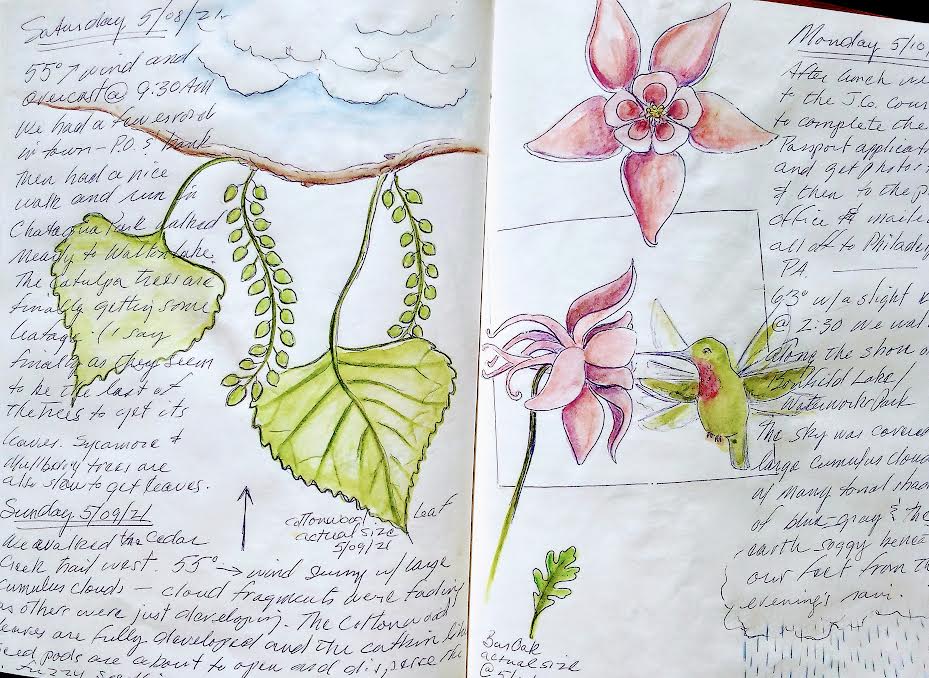 Saturday 5/08/21
55° ↗ wind and
overcast @ 9:30 AM
We had a few errands
in town – P.O. & bank
Then had a nice
walk and run in
Park walked
nearly to Walton Lake.
The Catulpa trees are
finally getting some
leafage (I say
finally as they seem
to be the last of
the trees to get its
leaves. Sycamore &
Mullberry trees are
also slow to get leaves.
Sunday 5/09/21
We walked the Cedar
Creek trail west. 55° → wind sunny w/ large
cumulus clouds – cloud fragments were fading
as others were just developing. The Cottonwood
leaves are fully developed and the catkin like
seed pods are about to open and disperse the
fuzzy
cottonwood Leaf
actual size
5/09/21
Monday 5/10
After lunch we
t the J.C. Cour
to complete the
Passport applicati
and get photos
& then to the p
office & maile
all off to Philadel
PA.
63° w/a slight
@ 2:30 we wal
along the shore o
Bonnifield Lake/
Waterworks Park
The sky was covere
large cumulus cloud
w/ many tonal shad
of blue-gray & the
earth soggy benea
our feet from th
evening's rain.
Bur Oak
actual size
@ 5/